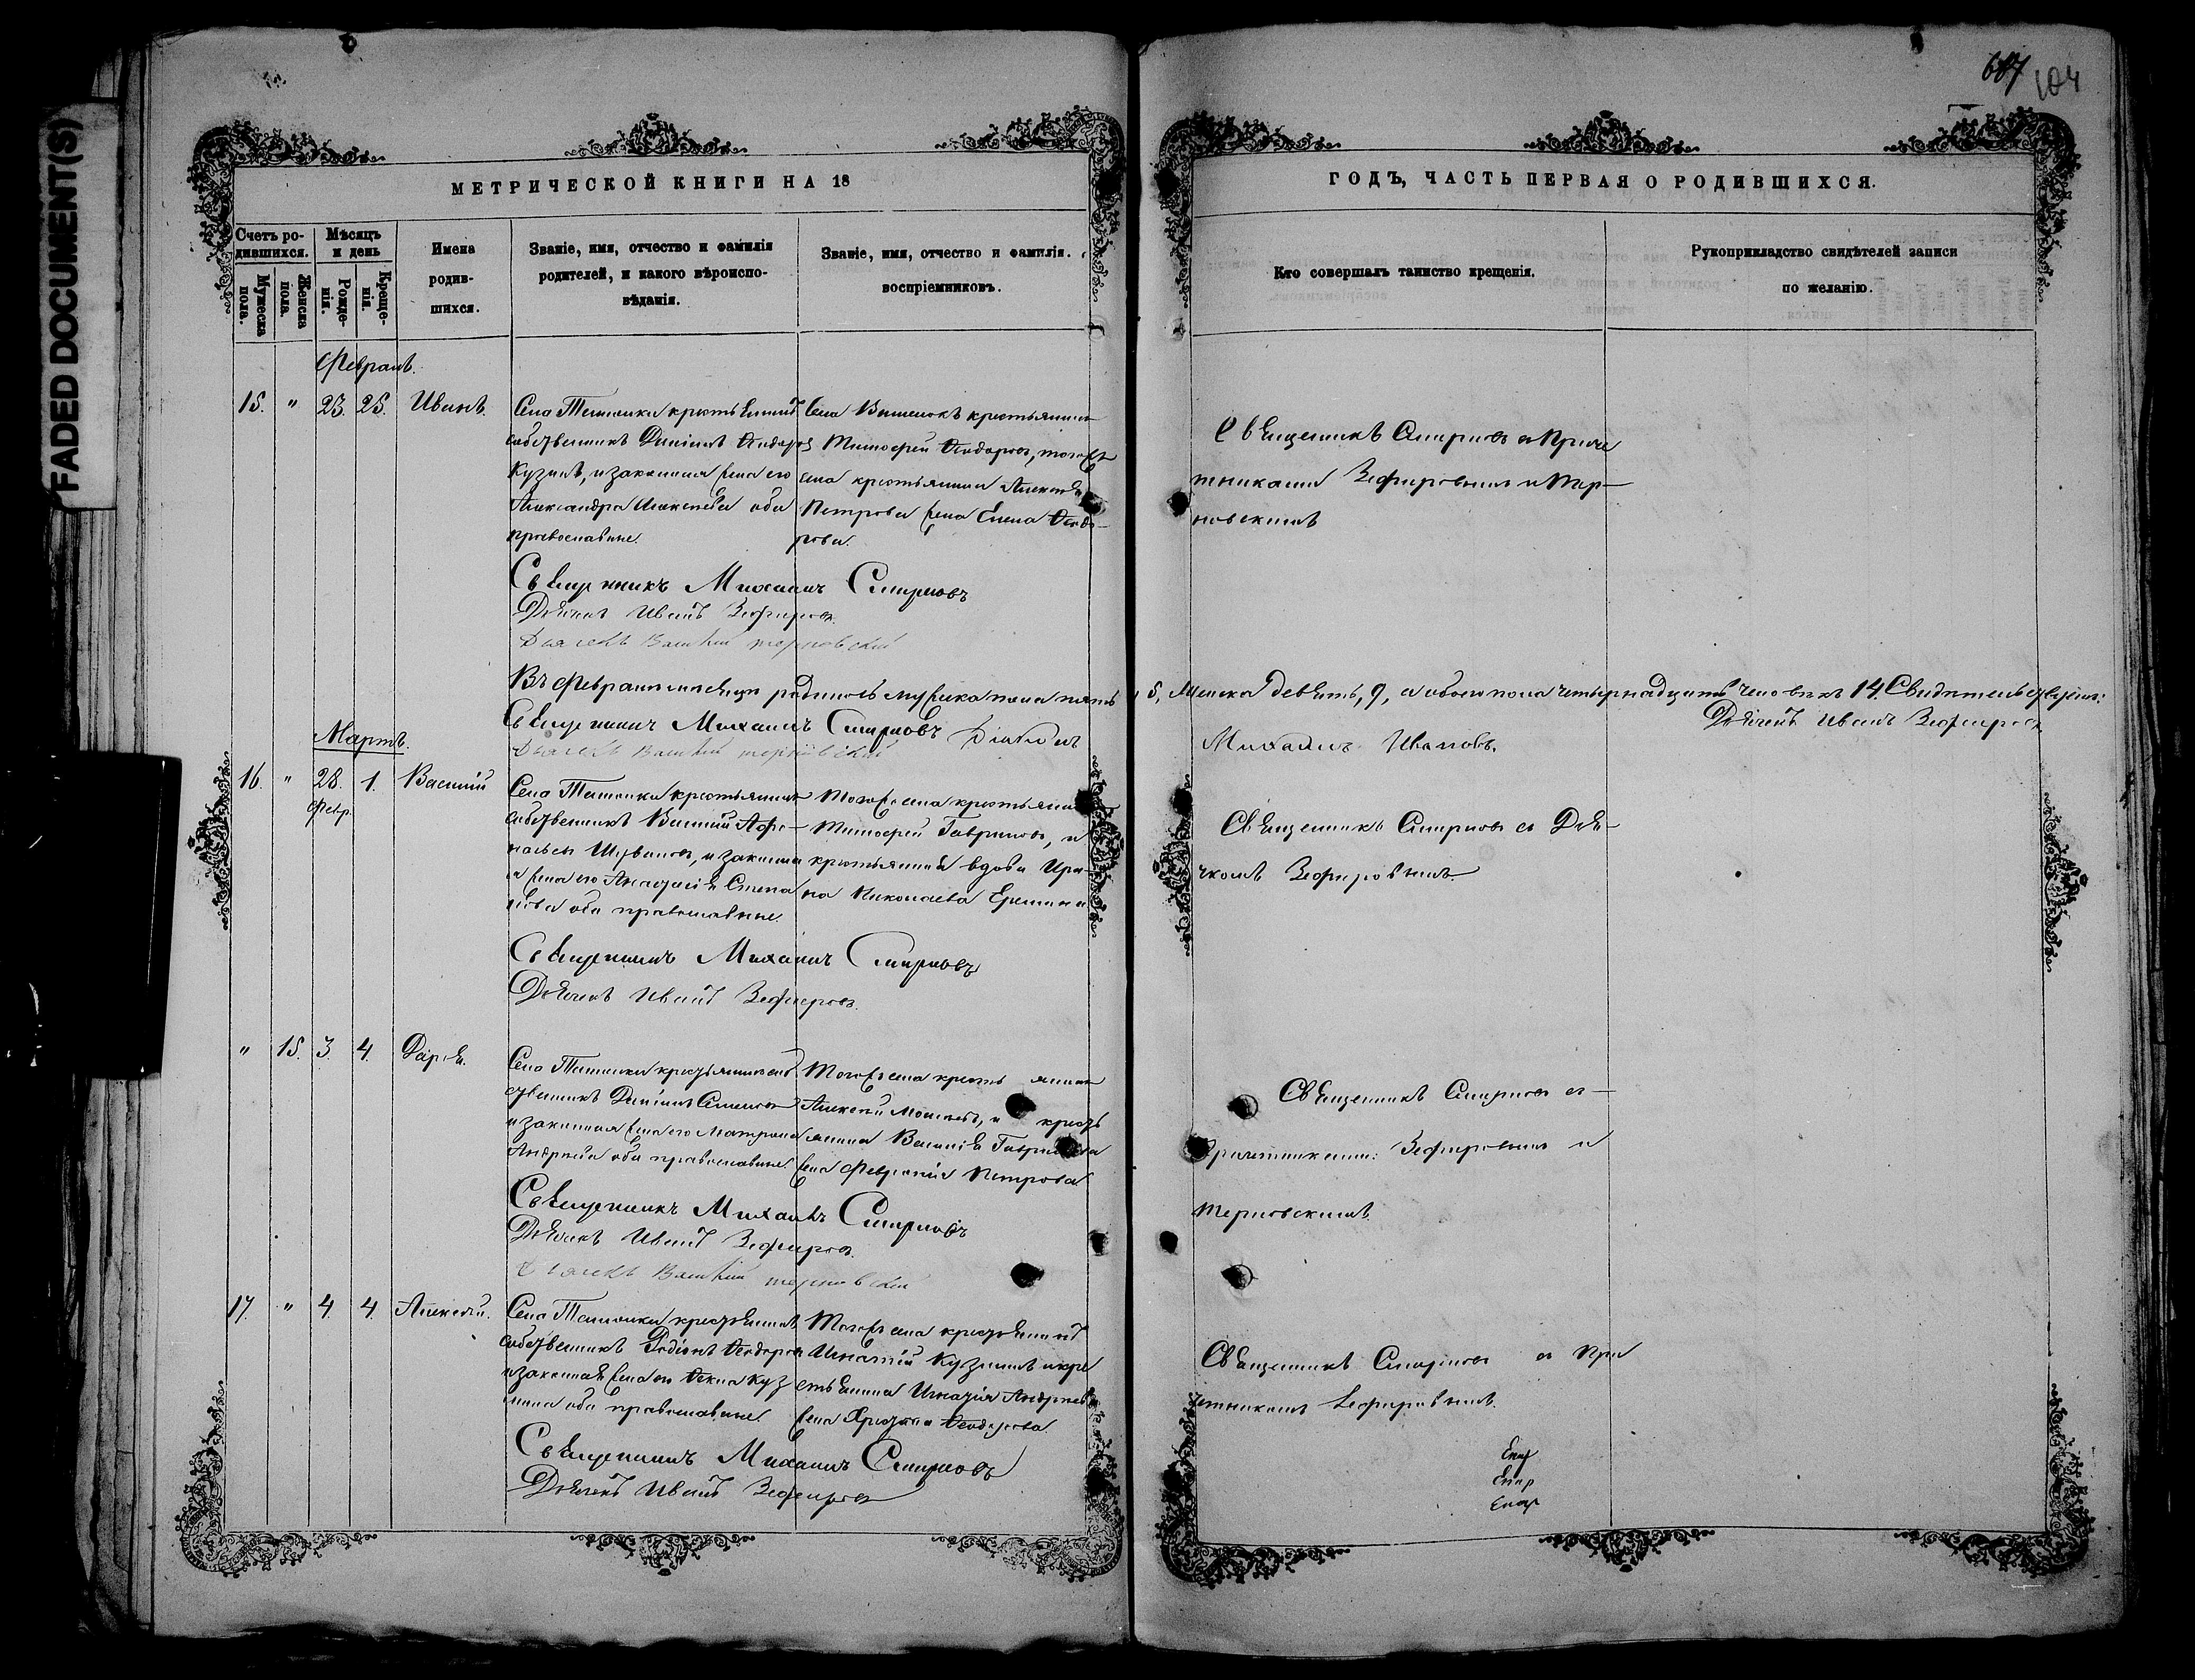 FADED DOCUMENT(S)
104
МЕТРИЧЕСКОЙ КНИГИ НА 18
ГОДЪ, ЧАСТЬ ПЕРВАЯ О РОДИВШИХСЯ.
Счетъ ро-
дившихся.
Мужеска
пола.
Женска
пола.
Мѣсяцъ
и день
Рожде-
нія.
Креще-
нія.
Имена
родив-
шихся.
Званіе, имя, отчество и фамилія
родителей, и какого вѣроиспо-
вѣданія.
Званіе, имя, отчество и фамилія.
воспріемниковъ.
Кто совершалъ таинство крещенія.
Рукоприкладство свидѣтелей записи
по желанію.
Февраль.
15. " 23. 25. Иванъ.
собственникъ Даніилъ Ѳеодоров
Кузинъ, и законная жена его
Александра Алексѣева оба
православные.
Тимофей Ѳеодоровъ, того же
села крестьянина Алексѣя
Петрова жена Елена Ѳеодо-
рова.
Священникъ Смирновъ съ Приче
тниками Зефировымъ и Тер-
новскимъ
Священникъ Михаилъ Смирновъ
Дьячекъ Иванъ Зефировъ
Дьячекъ Василій терновскій
Въ Февралѣ мѣсяцѣ родилось мужеска пола пять 5, женска девять, 9, а обоего пола четырнадцать человѣкъ 14. Свидѣтельствуемъ:
Священникъ Михаилъ Смирновъ Діаконъ
Михаилъ Ивановъ.
Дьячекъ Иванъ Зефировъ
Дьячекъ Василій терновскій
Мартъ.
16. " 28. 1. Василій
Февр.
собственникъ Василій Афо-
насьевъ, и законна
я жена его Анастасія Степа
нова оба православные.
Того же села крестьянинъ
Тимофей Гавриловъ, и
крестьянская вдова Ири-
на Николаева
Священникъ Смирновъ съ Дья-
чкомъ Зефировымъ
Священникъ Михаилъ Смирновъ
Дьячекъ Иванъ Зефировъ.
" 15. 3. 4. Дарья.
ственникъ Даніилъ Семеновъ
и законная жена его Матрона
Андреева оба православные.
Того же села крестьянинъ
Алексѣй Моисеевъ, и крестъ
янина Василія Гаврилова
жена Февронія Петрова
Священникъ Смирновъ съ-
Причетниками: Зефировымъ и
Терновскимъ.
Священникъ Михаилъ Смирновъ
Дьячекъ Иванъ Зефировъ.
Дьячекъ Василій терновскій
17. " 4. 4. Алексѣй.
собственникъ Родіонъ Ѳеодоровъ
и законная жена его Ѳекла Куз
мина оба православные
Того же села крестьянинъ
Игнатій Кузминъ и кре
стьянина Игнатія Андреева
жена Ѳеодорова
Священникъ Смирновъ съ При
четникомъ Зефировымъ.
Священникъ Михаилъ Смирновъ
Дьячекъ Иванъ Зефировъ